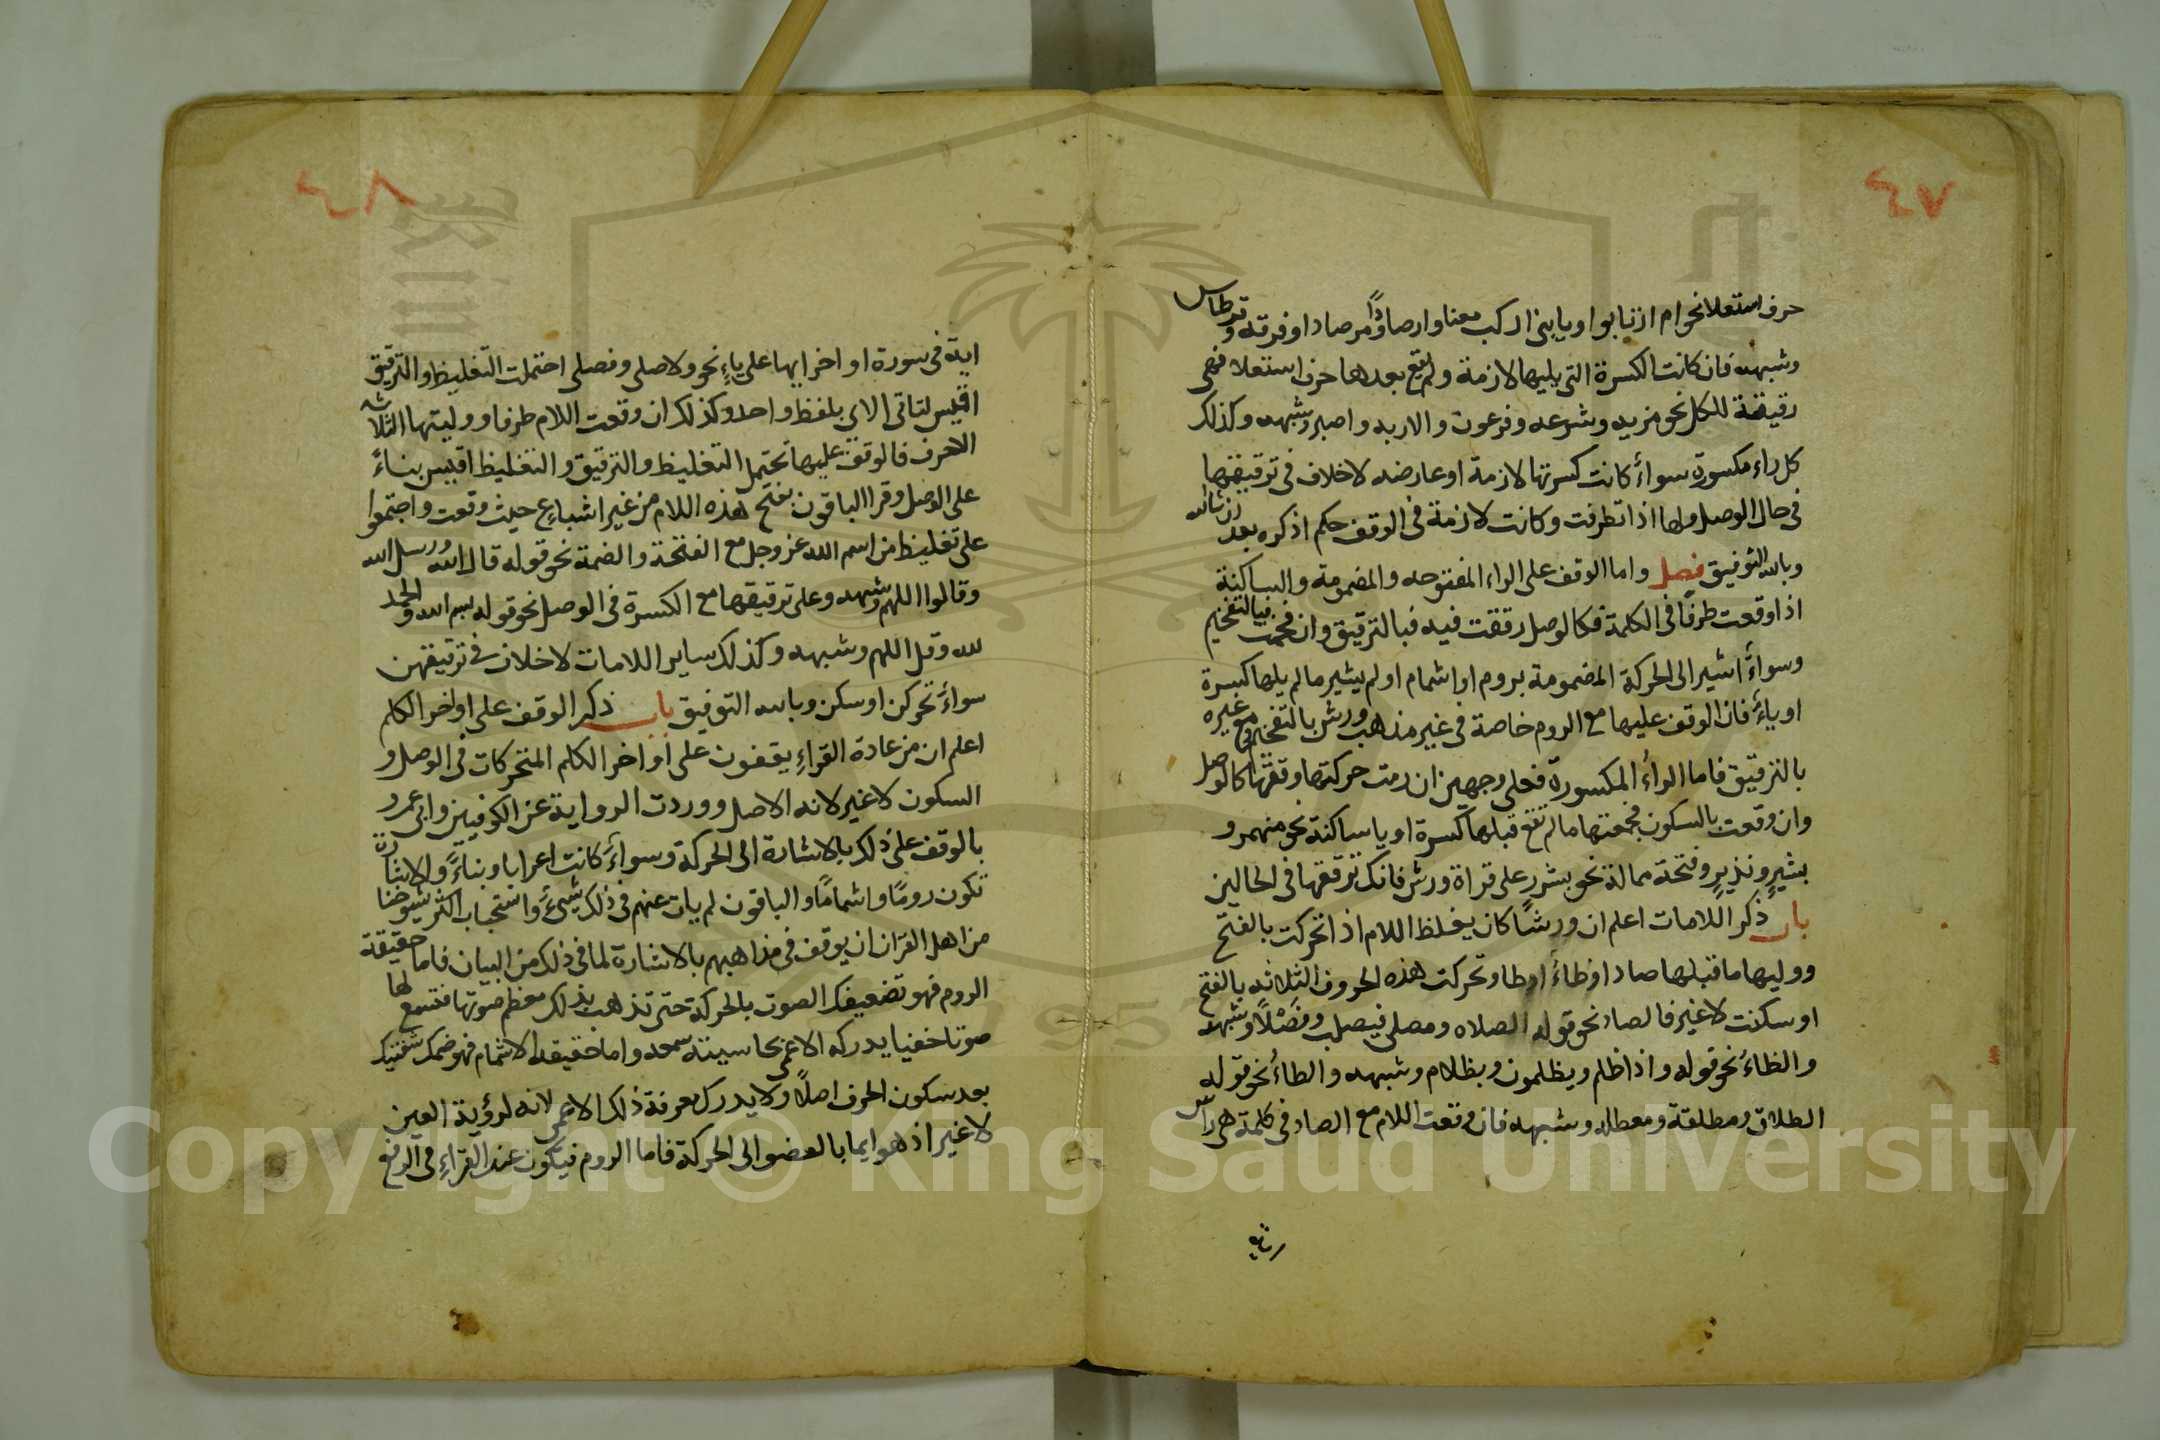 ٤٧
حرف استعلا نحو ام ارتابوا ويا بنى اركب معنا وارصادًا مرصاد او فرقة وقرطاس
وشبهه فان كانت الكسرة التى يليها لازمة ولم يقع بعدها حرف استعلا فهى
رقيقة للكل نحو مزيه وشرعه وفرعون والاربه واصبر وشبهه وكذلك
كل راء مكسورة سواءً كانت كسرتها لازمة او عارضه لا خلاف فى ترقيقها
فى حال الوصل ولها اذا تطرفت وكانت لازمة فى الوقف حكم اذكره بعد ان شا الله
وبالله التوفيق فصل واما الوقف على الراء المفتوحه والمضمومة والساكنة
اذا وقعت طرفًا فى الكلمة فكالوصل رققت فيه فبالترقيق وان فخمت فبالتفخيم
وسواءً اشير الى الحركة المضمومة بروم او اشمام او لم يشير ما لم يلها كسرة
او ياءً فان الوقف عليها مع الروم خاصة فى غير مذهب ورش بالتفخيم مع غيره
بالترقيق فاما الراءُ المكسورة فعلى وجهين ان رمت حركتها رققتها كالوصل
وان وقعت بالسكون فخمتها ما لم تقع قبلها كسرة او يا ساكنة نحو منهمر و
بشيرٍ ونذيرٍ وفتحة ممالة نحو بشرر على قراة ورش فانك ترققها فى الحالين
باب ذكر اللامات اعلم ان ورشًا كان يغلظ اللام اذا تحركت بالفتح
ووليها ما قبلها صاد او ظاءً او طا وتحركت هذه الحروف الثلاثه بالفتح
او سكنت لا غير فالصاد نحو قوله الصلاه ومصلى فيصلب وفَصْلًا وشبهه
والظاءُ نحو قوله واذا ظلم ويظلمون وبظلام وشبهه والطاءُ نحو قوله
الطلاق ومطلقة ومعطلة وشبهه فان وقعت اللام مع الصاد فى كلمة هى راس
راية
٤٨
اية فى سورة او اخر ايها على ياءٍ نحو ولا صلى وفصلى احتملت التغليظ والترقيق
اقيس لتاتى الاى بلفظ واحد وكذلك ان وقعت اللام طرفا ووليتها الثلاثة
الاحرف فالوقف عليها تحتمل التغليظ والترقيق والتغليظ اقيس بناءً
على الوصل وقرا الباقون بفتح هذه اللام من غير اشباع حيث وقعت واجتمعوا
على تغليظ من اسم الله عز وجل مع الفتحة والضمة نحو قوله قال الله ورسل الله
وقالوا اللهم وشبهه وعلى ترقيقها مع الكسرة فى الوصل نحو قوله بسم الله والحمد
لله وقل اللهم وشبهه وكذلك ساير اللامات لا خلاف فى ترقيقهن
سواءً تحركن او سكن وبالله التوفيق باب ذكر الوقف على اواخر الكلم
اعلم ان من عادة القراءِ يقفون على اواخر الكلم المتحركات فى الوصل و
السكون لا غير لانه الاصل ووردت الرواية عن الكوفيين وابى عمرو
بالوقف على ذلك بالاشارة الى الحركة وسواءً كانت اعرابا وبناءً والاشارة
تكون رومًا واشمامًا والباقون لم يات عنهم فى ذلك شىءً واستحباب اكثر شيوخنا
من اهل القران ان يوقف فى مذاهبهم بالاشارة لما فى ذلك من البيان فاما حقيقة
الروم فهو تضعيفك الصوت بالحركة حتى تذهب بذلك معظم صوتها فتسمع لها
صوتا خفيا يدركه الاعمى بحاسيته سمعه واما حقيقة الاشمام فهو ضمك شفتيك
بعد سكون الحرف اصلًا ولا يدرك معرفة ذلك الاعمى لانه لرؤية العين
لا غير اذ هو ايما بالعضو الى الحركة فاما الروم فيكون عند القراءِ فى الرفع
Copyright © King Saud University
1957